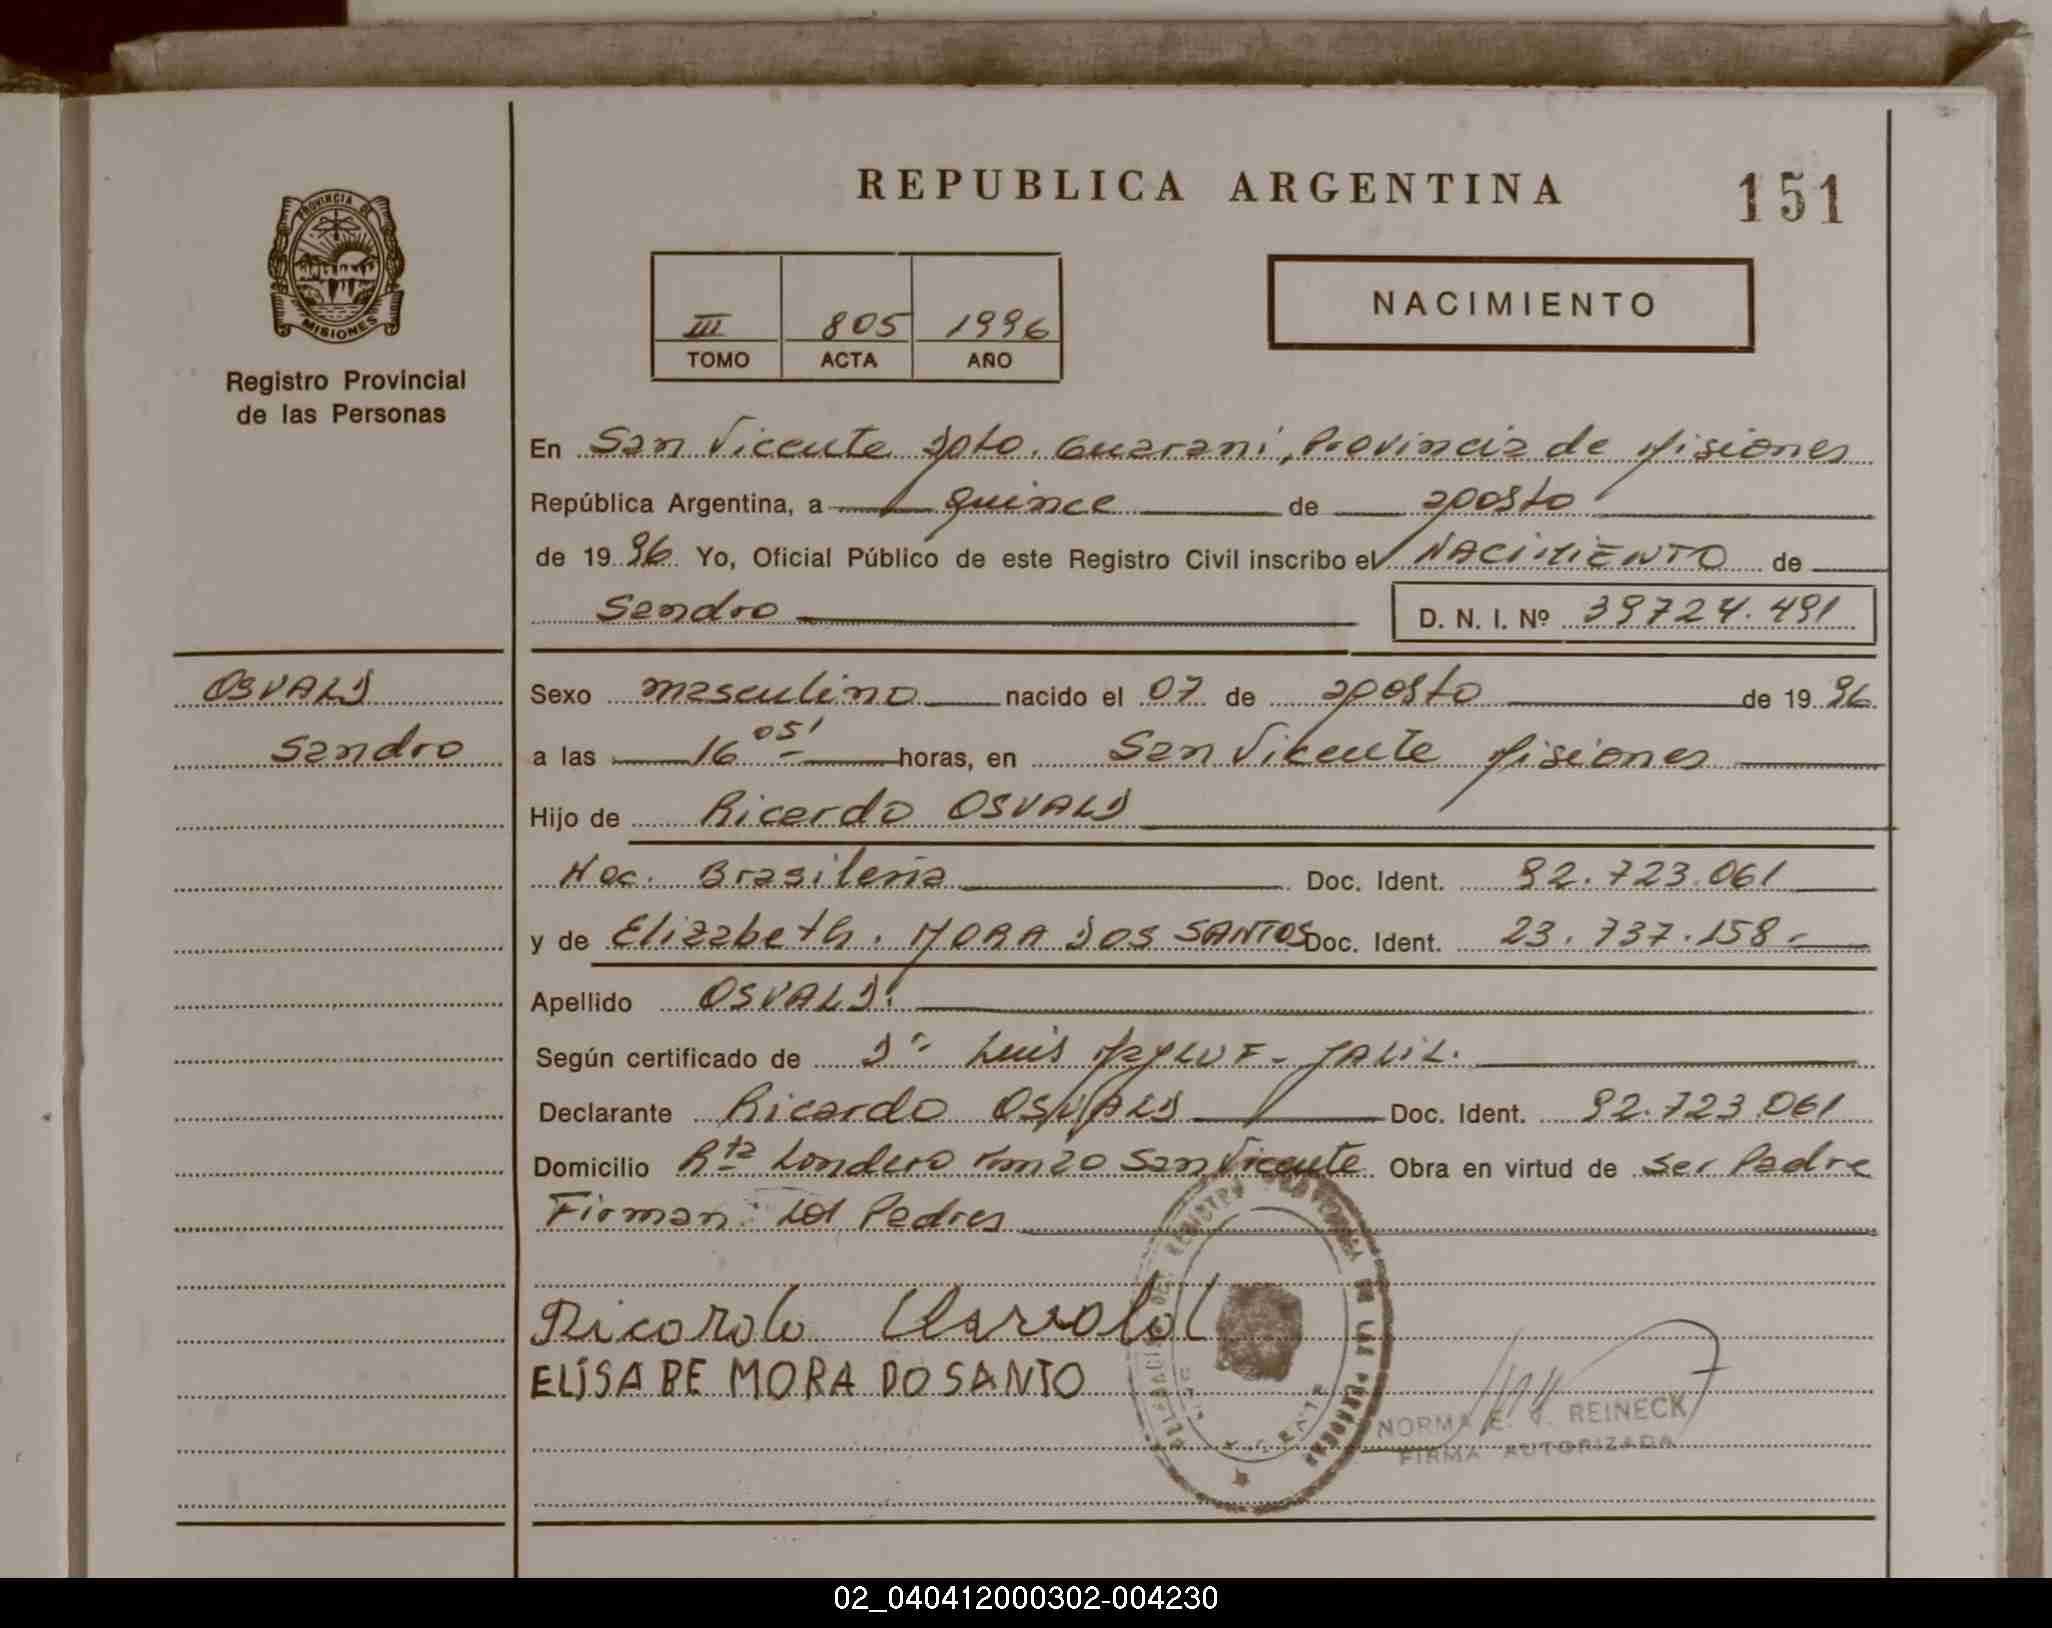 REPUBLICA ARGENTINA
151
PROVINCIA DE
MISIONES
Registro Provincial
de las Personas
III 805 1996
TOMO ACTA AÑO
NACIMIENTO
En San Vicente Dpto. Guarani, Provincia de Misiones
República Argentina, a quince de agosto
de 1996 Yo, Oficial Público de este Registro Civil inscribo el NACIMIENTO de
Sandro D. N. I. Nº 39724.491
OSVALD
Sandro
Sexo masculino nacido el 07 de agosto de 1996
a las 16 05' horas, en San Vicente Misiones
Hijo de Ricardo OSVALD
Nac. Brasileña Doc. Ident. 92.723.061
y de Elizabeth. MORA DOS SANTOS Doc. Ident. 23.737.158.-
Apellido OSVALD.
Según certificado de Dr. Luis JALIL.
Declarante Ricardo OSVALD Doc. Ident. 92.723.061
Domicilio Rta Londero Km 20 San Vicente Obra en virtud de ser Padre
Firman: Los Padres
Ricardo
ELISABE MORA DO SANTO
NORMA E. REINECK
FIRMA AUTORIZADA
02_040412000302-004230